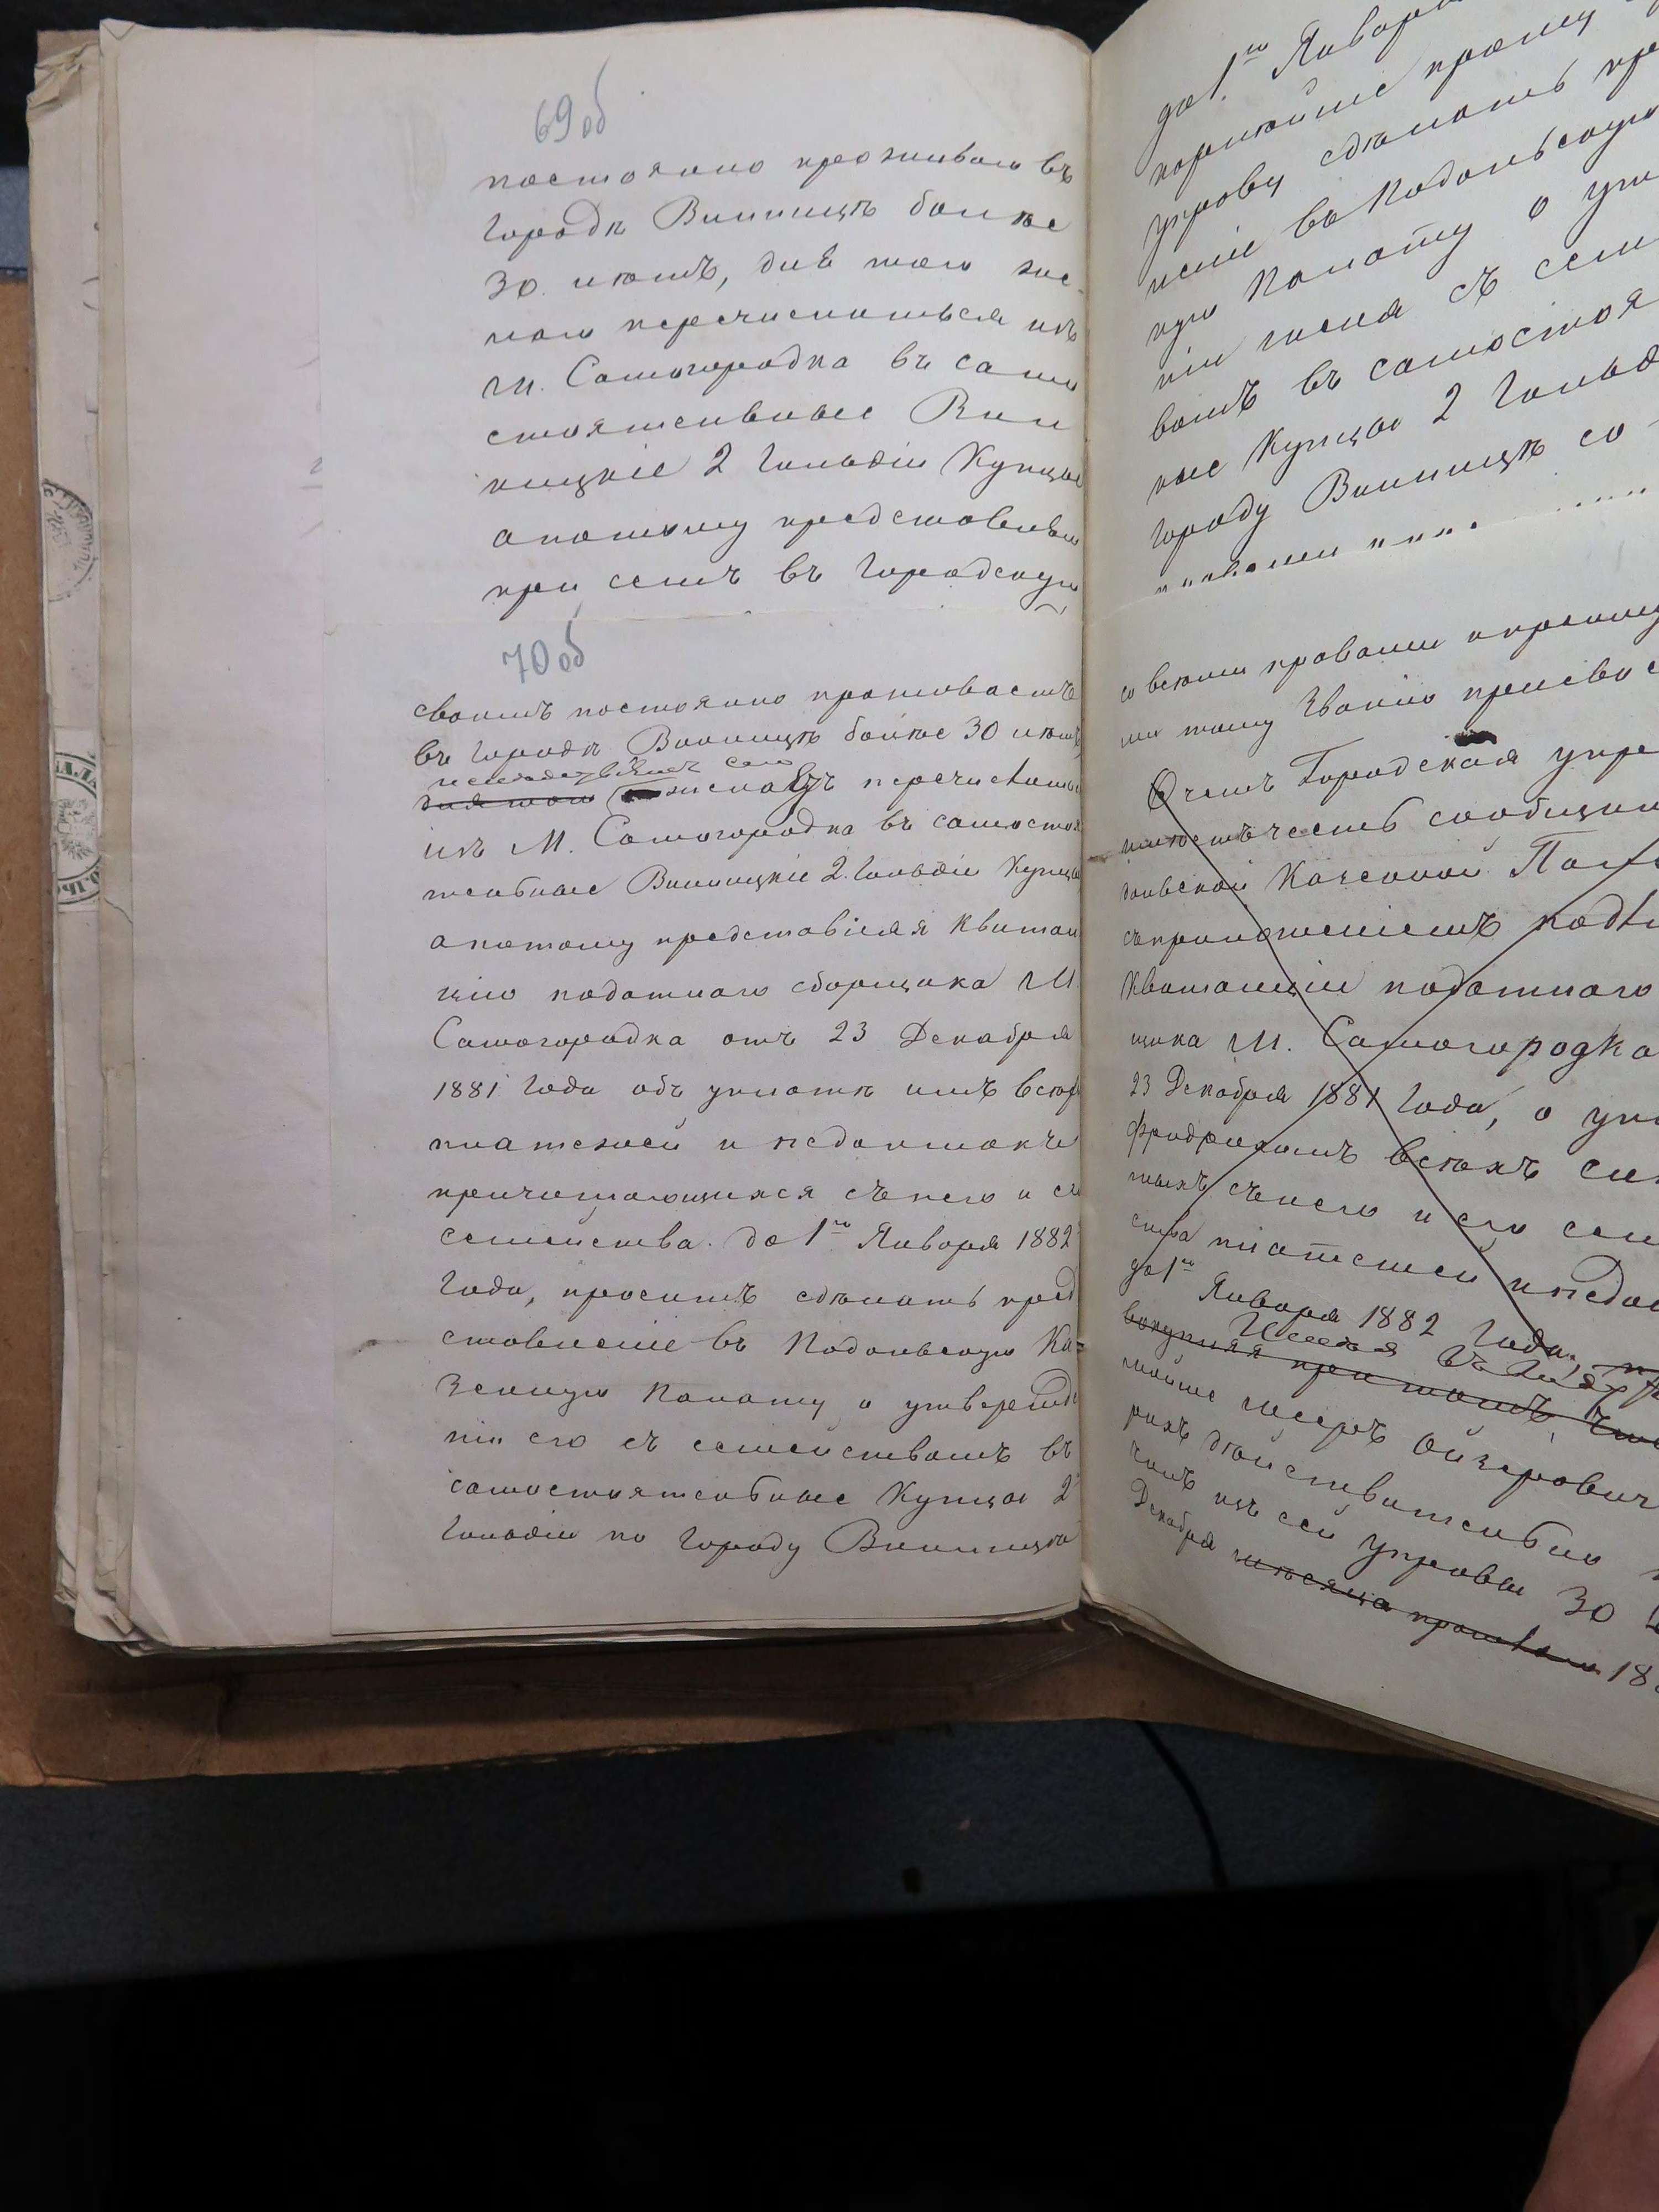 69 об
постоянно проживаю въ
городѣ Винницѣ болѣе
30 лѣтъ, для того же-
лаю перечислиться изъ
м. Самогородка въ само
стоятельные Вин
ницкіе 2 гильдіи Купцы
а потому представляя
при семъ въ Городскую
70 об
своимъ постоянно проживаетъ
въ городѣ Винницѣ болѣе 30 лѣтъ,
для того желаетъ перечислиться
изъ М. Самогородка въ самостоя
тельные Винницкіе 2. гильдіи Купцы
а потому представляя Квитан
цію податнаго сборщика М.
Самогородка отъ 23 Декабря
1881 года объ уплатѣ имъ всѣхъ
платежей и недоимокъ
причитающихся съ него и его
семейства до 1го Января 1882
года, проситъ сдѣлать пред
ставленіе въ Подольскую Ка-
зенную Палату о утвержде
ніи его съ семействомъ въ
самостоятельные Купцы 2
гильдіи по городу Винницѣ
до 1го Января
покорнѣйше прошу
управу сдѣлать пре
неніе въ Подольскую
ную Палату о ут
ніи меня съ сем
вомъ въ самостоя
ные Купцы 2 гильд
городу Винницѣ со
со всѣми правами и преиму
ми тому званію присвое
О чемъ Городская упр
имѣетъ честь сообщить
дольской Казенной Пала
съ приложеніемъ подл
Квитанціи податнаго
щика М. Самогородка
23 Декабря 1881 года, о упл
всѣхъ
съ него и его сем
ства платежей и недо
до 1го Января 1882 года,
Ойзеровичъ
дѣйствительно
управы 30
Декабря мѣсяца прошлаго 18